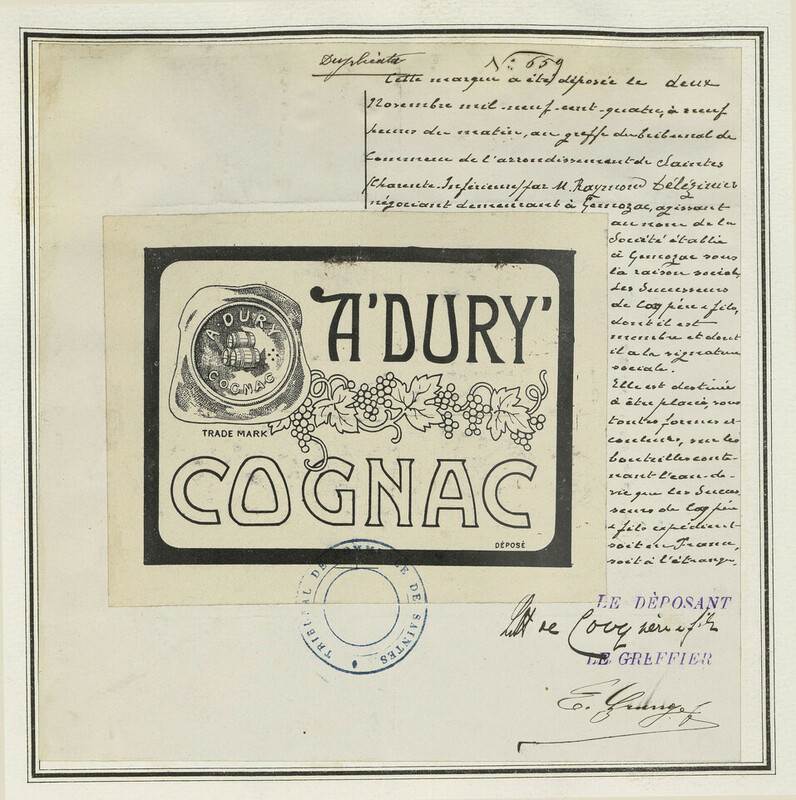 Duplicata
N: 659
Cette marque a été déposée le deux
Novembre mil-neuf-cent-quatre, à neuf
heures du matin, au greffe du tribunal de
Commerce de l'arrondissement de Saintes
(Charente-Inférieure) par M. Raymond
négociant demeurant à Gemozac, agissant
au nom de la
Société établie
à Gemozac sous
la raison sociale
des Successeurs
de Coq père & fils,
dont il est
membre et dont
il a la signature
sociale.
Elle est destinée
à être placée, sous
toutes formes et
couleurs, sur les
bouteilles conte-
nant l'eau-de-
vie que les Succes-
seurs de Coq père
& fils expédient
soit en France,
soit à l'étranger.
A'DURY'
A'DURY
COGNAC
TRADE MARK
COGNAC
DÉPOSÉ
TRIBUNAL DE COMMERCE DE SAINTES
LE DÉPOSANT
de Coq père & fils
LE GREFFIER
E.